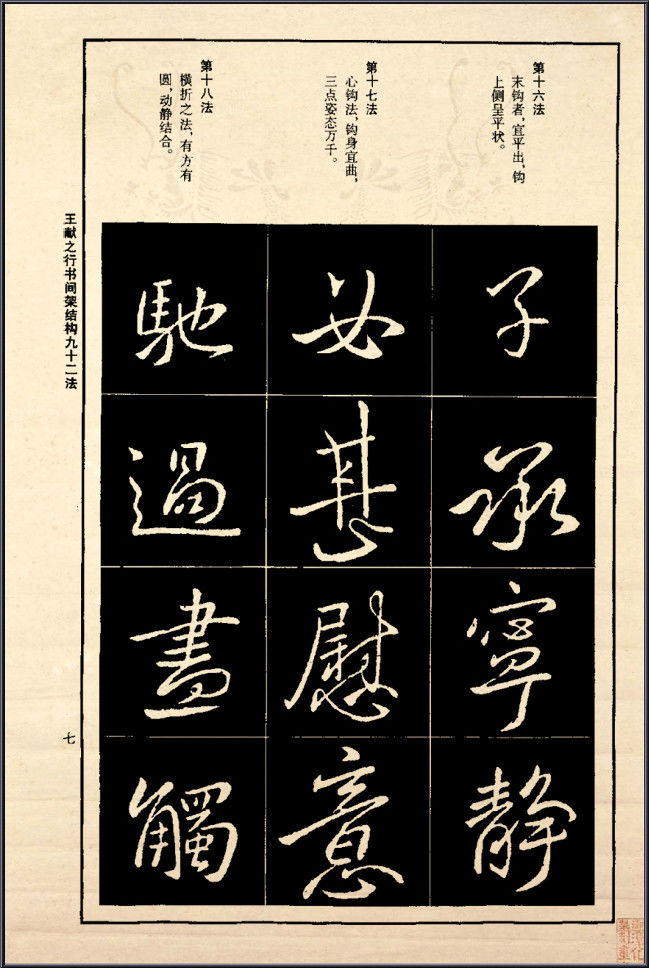 第十六法
末钩者，宜平出，钩
上侧呈平状。
第十七法
心钩法，钩身宜曲，
三点姿态万千。
第十八法
横折之法，有方有
圆，动静结合。
子承寧静
必甚慰意
馳過畫觸
王献之行书间架结构九十二法
七